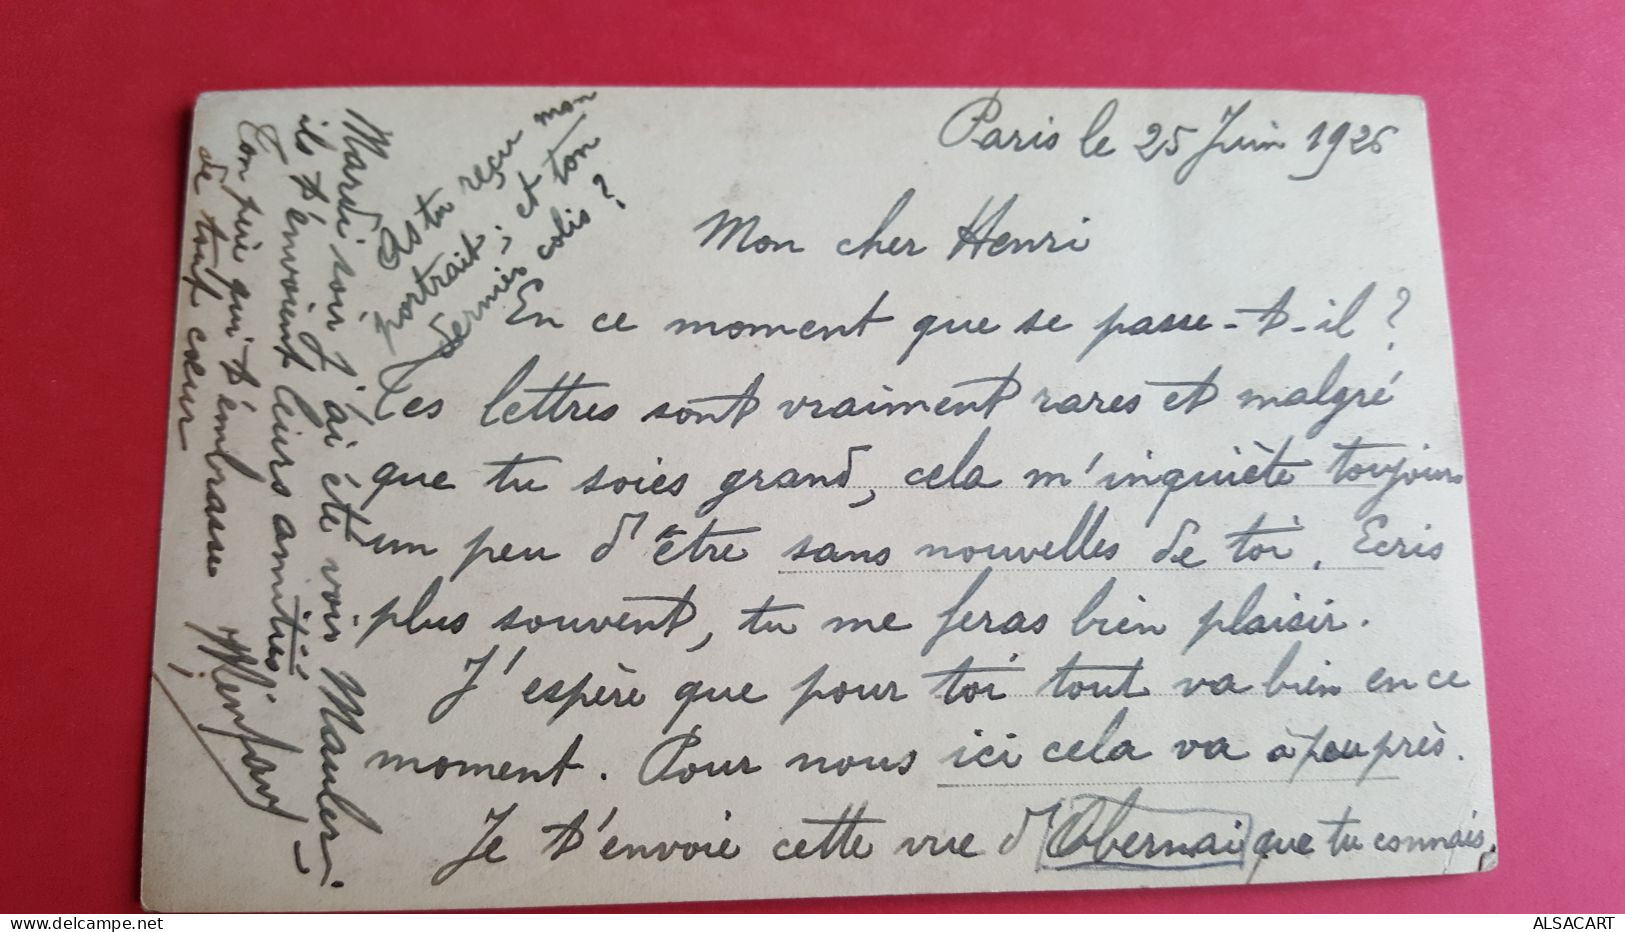 Paris le 25 Juin 1926
Mon cher Henri
En ce moment que se passe-t-il?
Tes lettres sont vraiment rares et malgré
que tu soies grand, cela m'inquiète toujours
un peu d'être sans nouvelles de toi. Ecris
plus souvent, tu me feras bien plaisir.
J'espère que pour toi tout va bien en ce
moment. Pour nous ici cela va à peu près.
Je t'envoie cette vue d'Obernai que tu connais.
Mardi soir j'ai été voir Mauler
ils t'envoient leurs amitiés
Ton père qui t'embrasse
de tout cœur
As tu reçu mon
portrait; et ton
dernier colis?
ALSACART